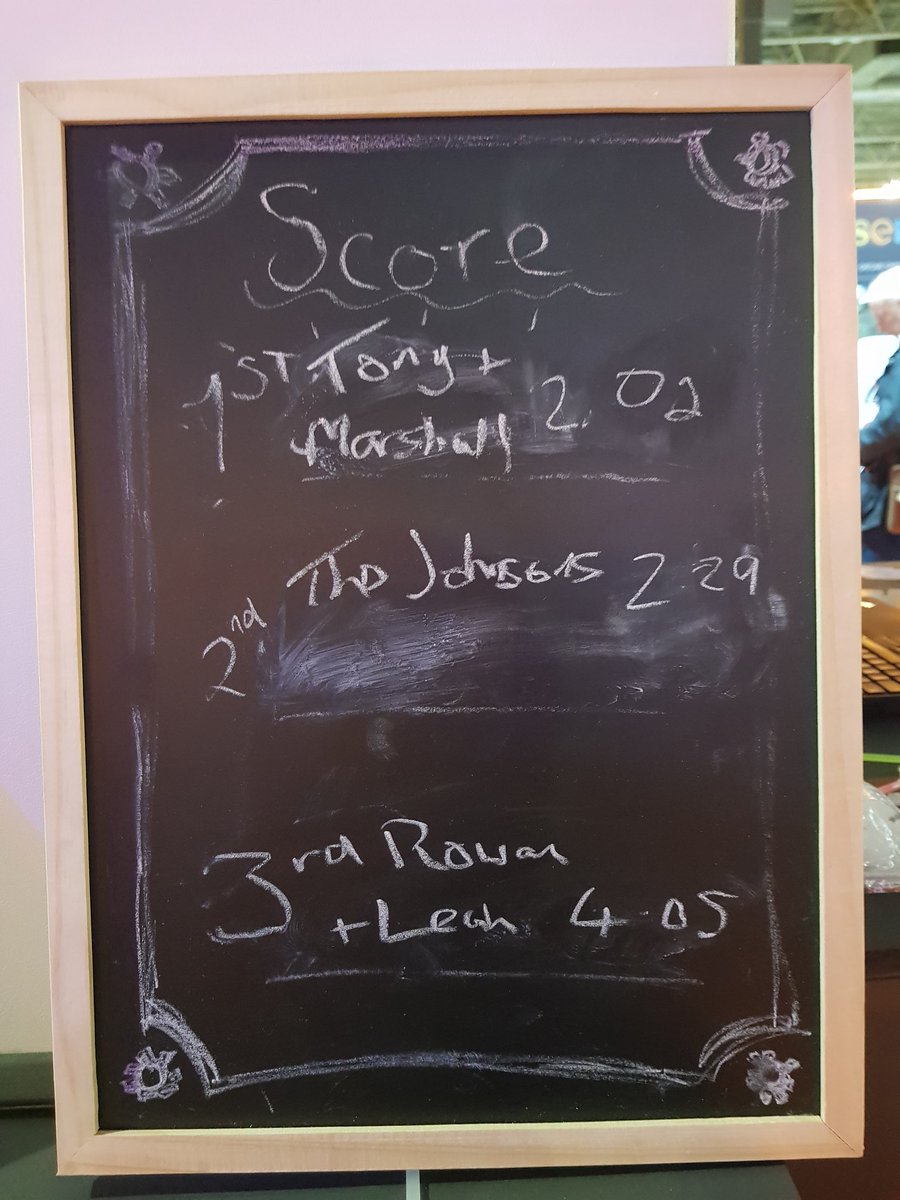 Score
1ST Tony +
Marshall 2.02
2nd The Johnsons 2 29
3rd Rowan
+Leah 4.05
se